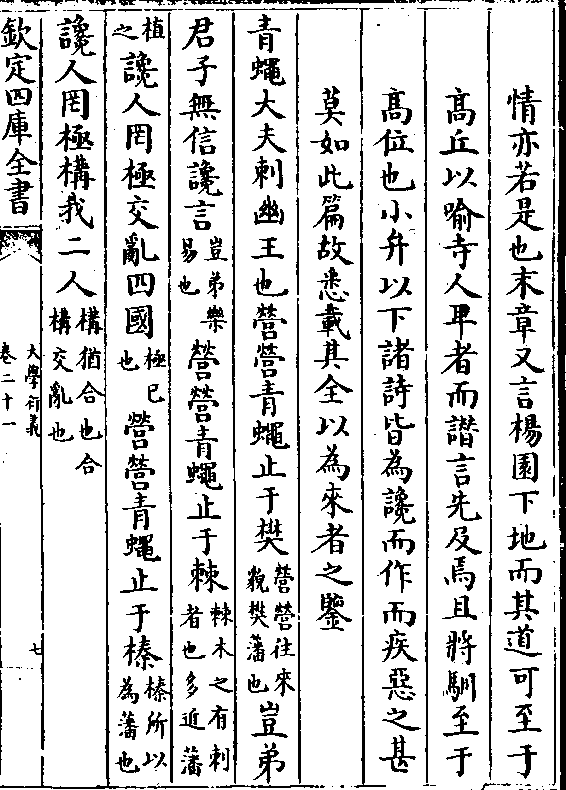 情亦若是也末章又言楊園下地而其道可至于
高丘以喻寺人卑者而譖言先及焉且將馴至于
高位也小弁以下諸詩皆為讒而作而疾惡之甚
莫如此篇故悉載其全以為來者之鑒
青蠅大夫刺幽王也營營青蠅止于樊營營往來貌樊藩也豈弟
君子無信讒言豈弟樂易也營營青蠅止于棘棘木之有刺者也多近藩
植之讒人罔極交亂四國極已也營營青蠅止于榛榛所以為藩也
讒人罔極構我二人構猶合也合構交亂也
欽定四庫全書
大學衍義
卷二十一
七